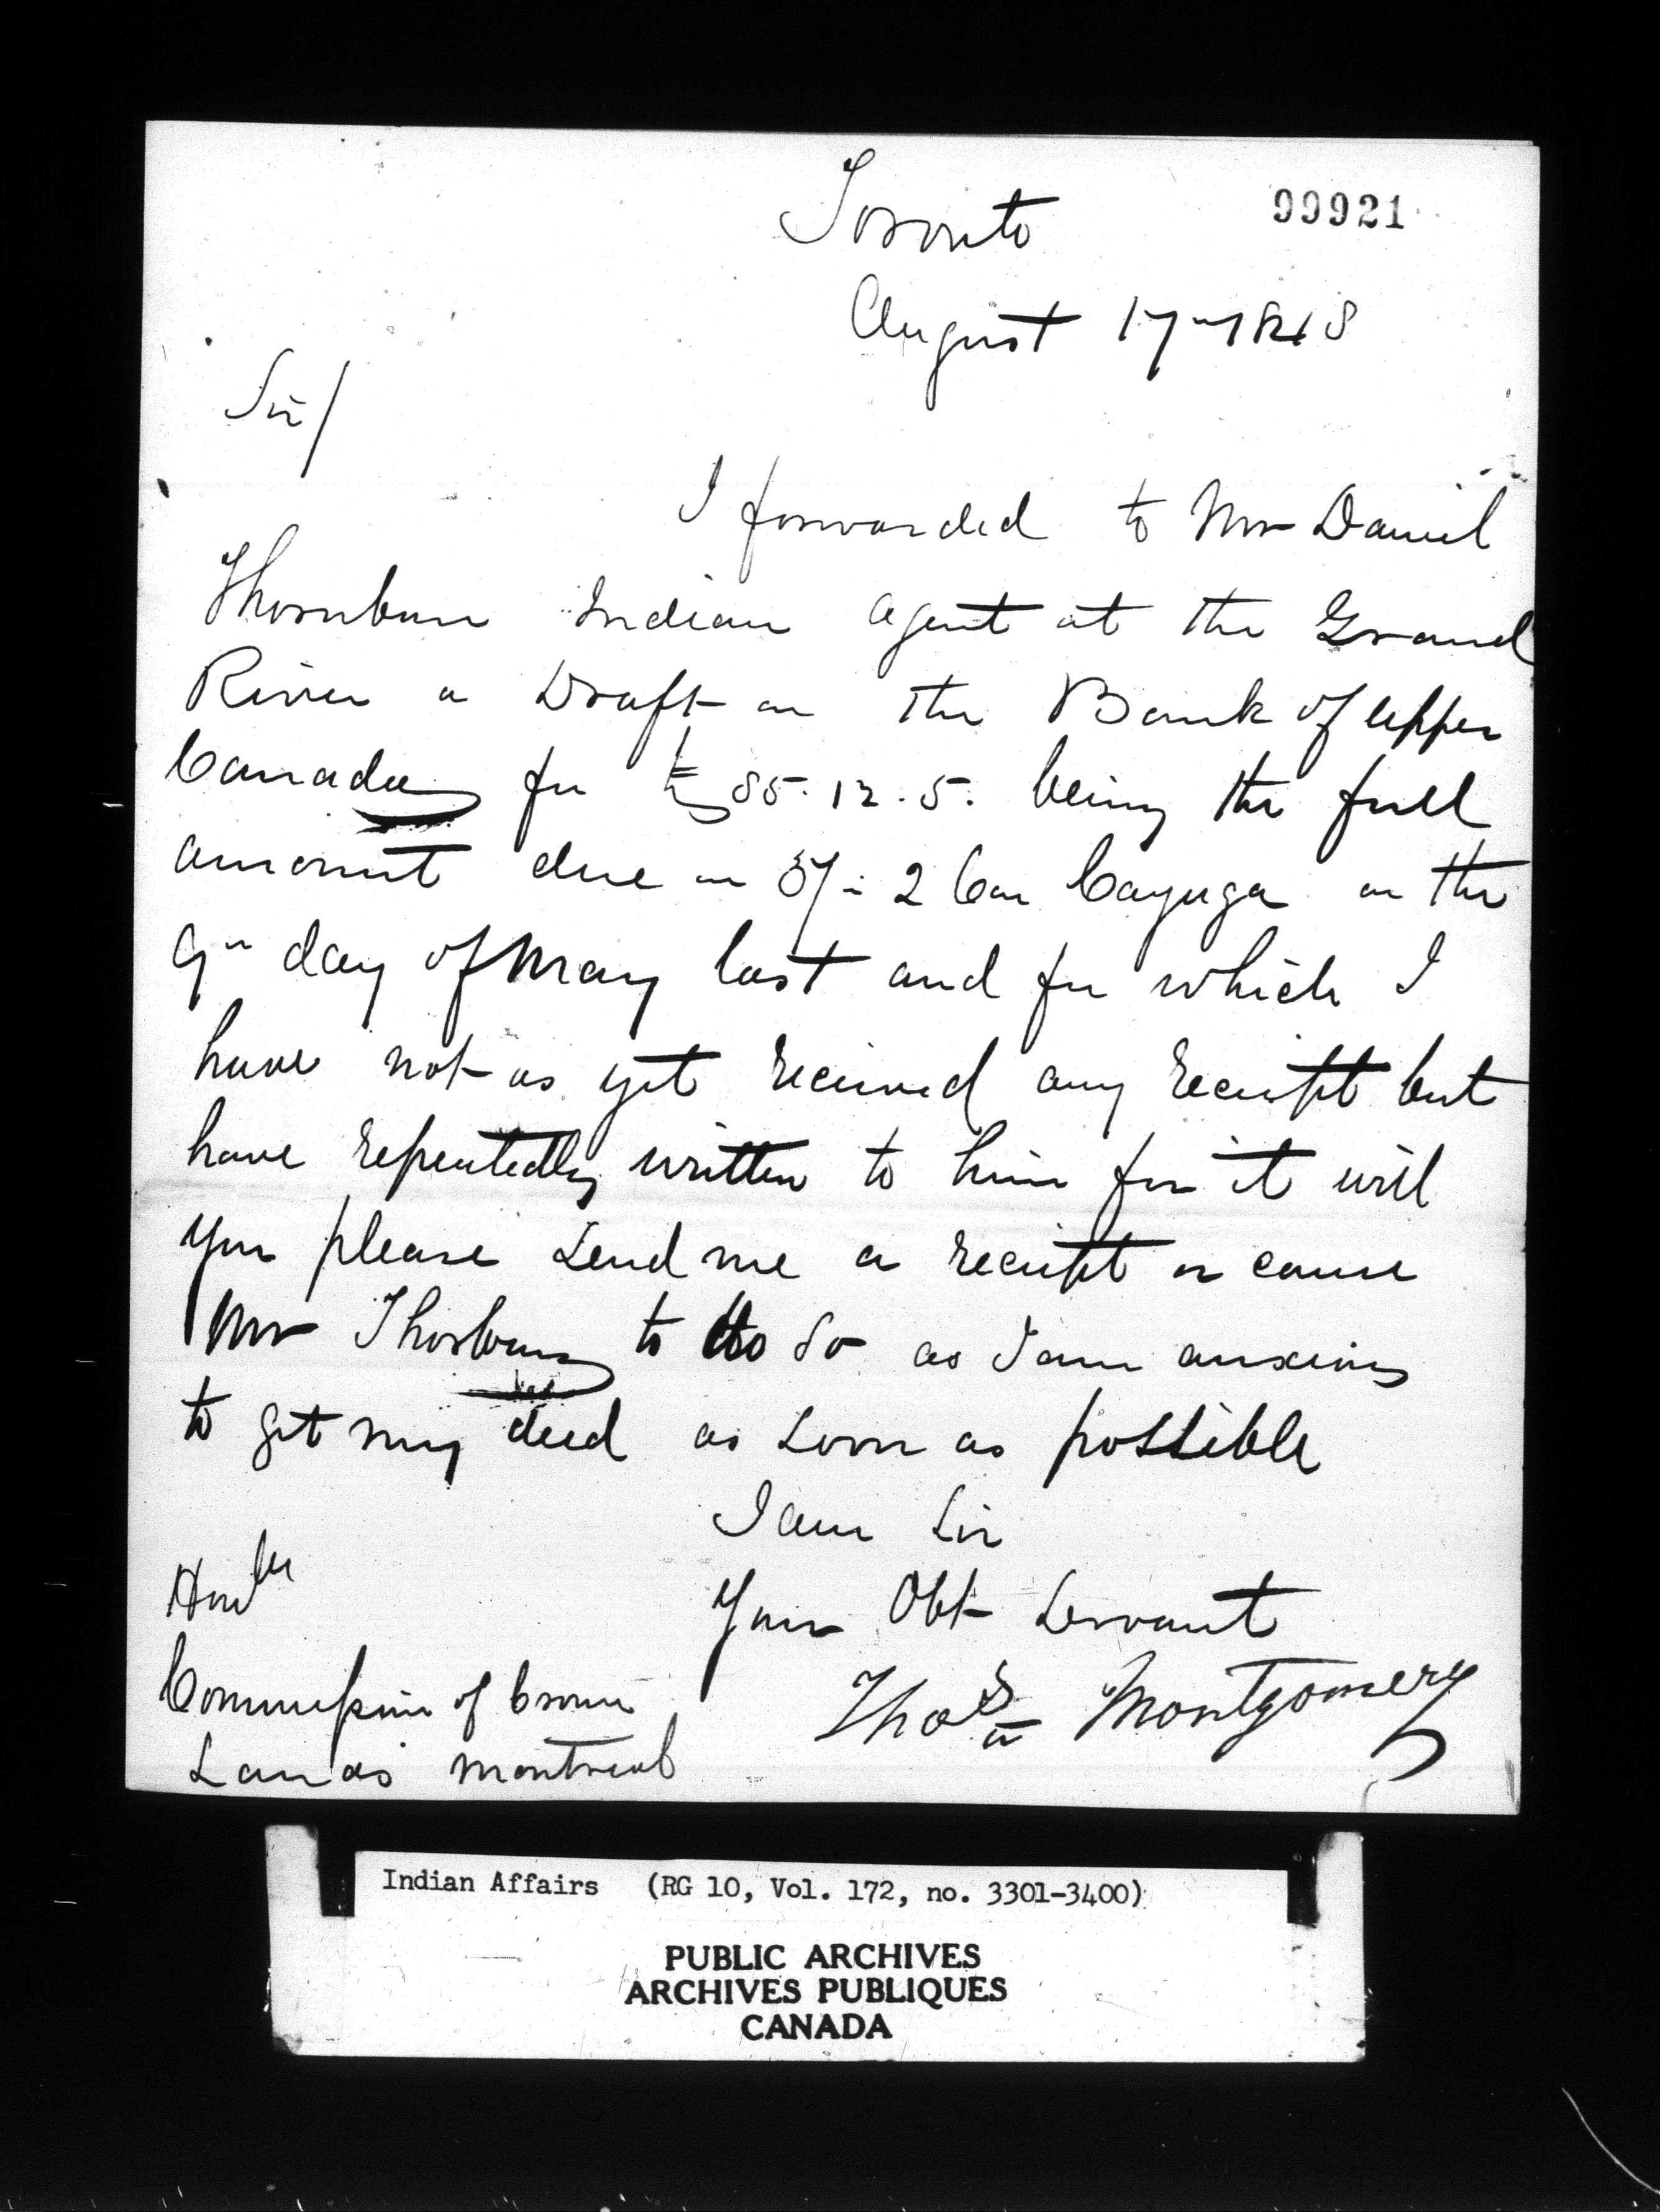 99921
Toronto
August 17th 1848
Sir/
I forwarded to Mr Daniel
Thornburn Indian agent at the Grand
River a Draft on the Bank of Upper
Canada for £85.12.5. being the full
amount due on 5/- 2 Con Cayuga on the
9th day of May last and for which I
have not as yet received any receipt but
have repeatedly written to him for it will
you please send me a receipt or cause
Mr Thorburn to do so as I am anxious
to get my deed as soon as possible
I am Sir
Your Obt Servant
Thos Montgomery
Honble
Commissioner of Crown
Lands Montreal
Indian Affairs (RG 10, Vol. 172, no. 3301-3400)
PUBLIC ARCHIVES
ARCHIVES PUBLIQUES
CANADA